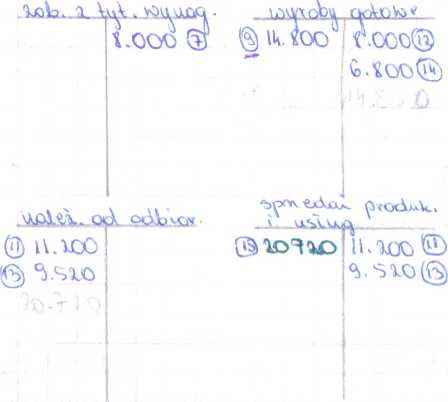 zob. z tyt. wynag.
8.000 7
wyroby gotowe
9 14.800 8.000 12
6.800 14
należ. od odbior.
11 11.200
13 9.520
20.720
sprzedaż produk.
i usług
15 20720 11.200 11
9.520 13